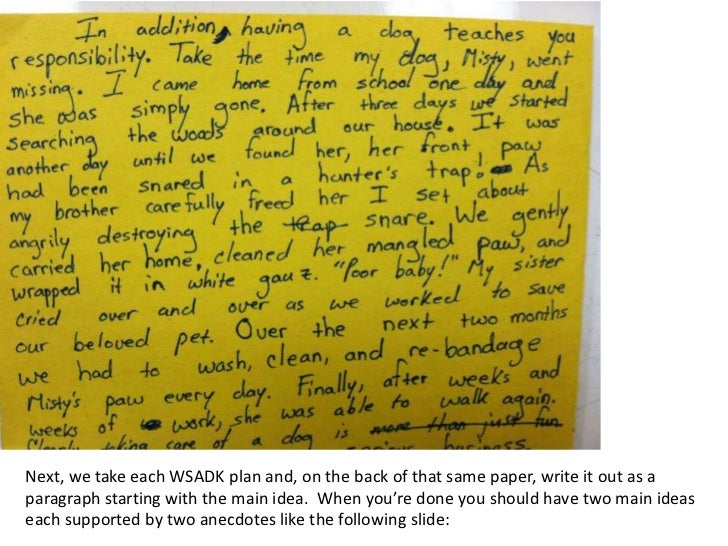 In addition, having a dog teaches you
responsibility. Take the time my dog, Misty, went
missing. I came home from school one day and
she was simply gone. After three days we started
searching the woods around our house. It was
another day until we found her, her front paw
had been snared in a hunter's trap! As
my brother carefully freed her I set about
angrily destroying the trap snare. We gently
carried her home, cleaned her mangled paw, and
wrapped it in white gauz. "Poor baby!" My sister
cried over and over as we worked to save
our beloved pet. Over the next two months
we had to wash, clean, and re-bandage
Misty's paw every day. Finally, after weeks and
weeks of work, she was able to walk again.
Clearly taking care of a dog is more than just fun
business.
Next, we take each WSADK plan and, on the back of that same paper, write it out as a
paragraph starting with the main idea.  When you're done you should have two main ideas
each supported by two anecdotes like the following slide: